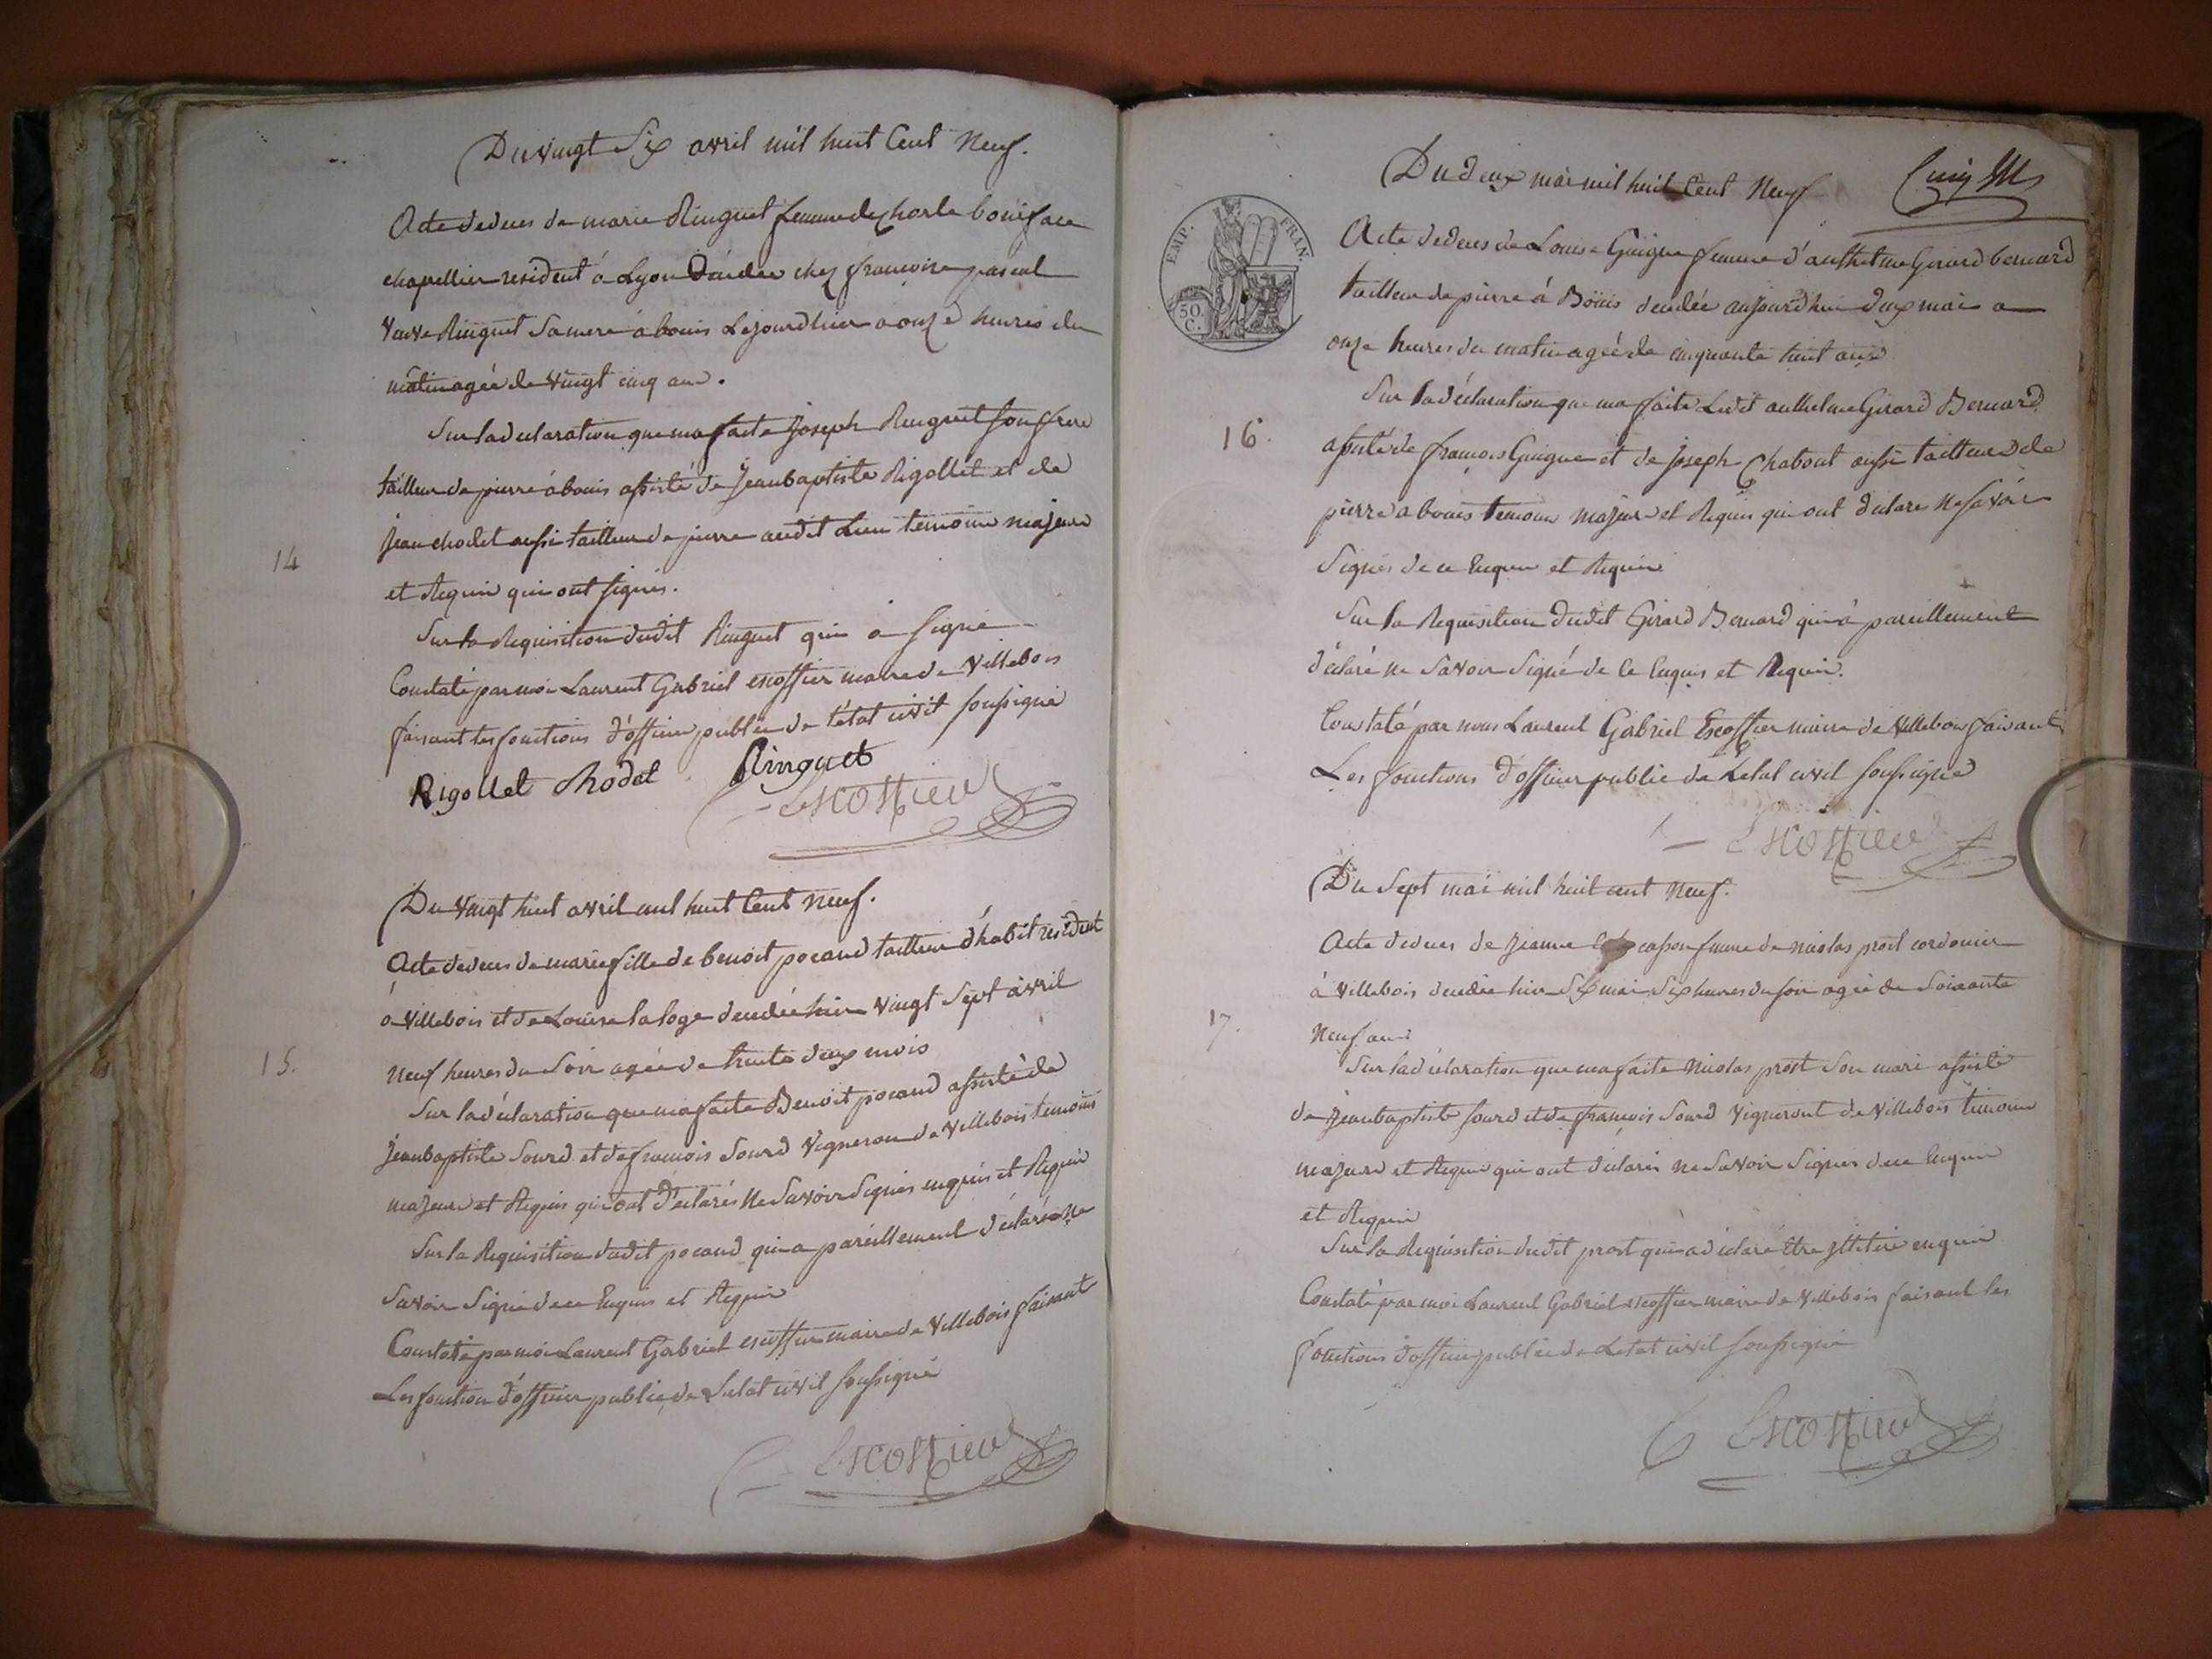 Du vingt Six avril mil huit Cent Neuf.
Acte de deces de marie Ringuet femme de charle boniface
chapellier resident à Lyon décédée chez francoise pascal
Veuve Ringuet Sa mere à bouis Le jourd'hier a onze heures du
mâtin agée de Vingt cinq ans.
Sur la declaration que ma faite Joseph Ringuet Son frere
tailleur de pierre à bouis assisté de Jean baptiste Rigollet et de
Jean chodet aussi tailleur de pierre audit Lieu temoins majeurs
et Requis qui ont signés.
14
Sur la Requisition dudit Ringuet qui a Signé
Constaté par moi Laurent Gabriel escoffier maire de Villebois
faisant les fonctions d'officier public de l'état civil soussigné
Rigollet Chodet Ringuet
Escoffier
Du Vingt huit avril mil huit Cent Neuf.
Acte de deces de marie fille de benoit pocand tailleur d'habit résident
à Villebois et de Louise la loge decedée hier Vingt Sept avril
Neuf heures du Soir agée de trente deux mois
15.
Sur la déclaration que ma faite Benoit pocand assisté de
Jean baptiste Sourd et de francois Sourd Vigneron de Villebois temoins
majeurs et Requis qui ont déclarés Ne Savoir Signés enquis et Requis
Sur la Requisition dudit pocand qui a paréillement déclaré Ne
Savoir Signé de ce Enquis et Requis
Constaté par moi Laurent Gabriel escoffier maire de Villebois faisant
Les fonction d'officier public de L'etat civil soussigné
Escoffier
Du deux mai mil huit Cent Neuf
EMP. FRAN.
50 C.
Acte de deces de Louise Guigue femme d'anthelme Girard bernard
tailleur de pierre à Bouis decedée aujourd'hui deux mai a
onze heures du matin agée de cinquante huit ans
Sur la déclaration que ma faite Ledit anthelme Girard Bernard
16.
assisté de francois Guigue et de Joseph Chabout aussi tailleurs de
pierre a bouis temoins majeurs et Requis qui ont declaré Ne Savoir
Signés de ce Enquis et Requis
Sur la Requisition dudit Girard Bernard qui a pareillement
déclaré ne Savoir Signé de ce Enquis et Requis.
Constaté par nous Laurent Gabriel Escoffier maire de Villebois faisant
Les fonctions d'officier public de L'etat civil soussigné
Escoffier
Du Sept mai mil huit cent Neuf.
Acte de deces de Jeanne casson femme de nicolas prost cordonier
à Villebois decedée hier Six mai Six heures du soir agée de Soixante
17.
Neuf ans
Sur la déclaration que ma faite Nicolas prost Son mari assisté
de Jean baptiste Sourd et de francois Sourd Vigneront de Villebois temoins
majeurs et Requis qui ont déclarés ne Savoir Signés de ce Enquis
et Requis
Sur la Requisition dudit prost qui a déclaré être illitéré enquis
Constaté par moi Laurent Gabriel escoffier maire de Villebois faisant les
fonctions d'officier public de L'etat civil soussigné
Escoffier